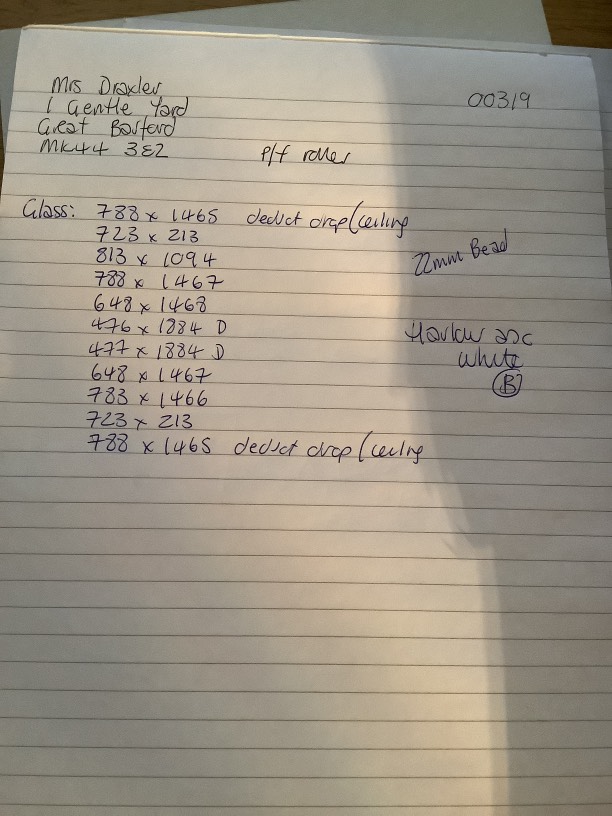 Mrs Draxler
1 Gentle Yard
Great Barford
MK44 3EZ
00319
P/f roller
Glass: 788 x 1465 deduct drop (ceiling
723 x 213
813 x 1094
788 x 1467
648 x 1468
476 x 1884 D
477 x 1884 D
648 x 1467
783 x 1466
723 x 213
788 x 1465 deduct drop (ceiling
22mm Bead
Harlow asc
white
B